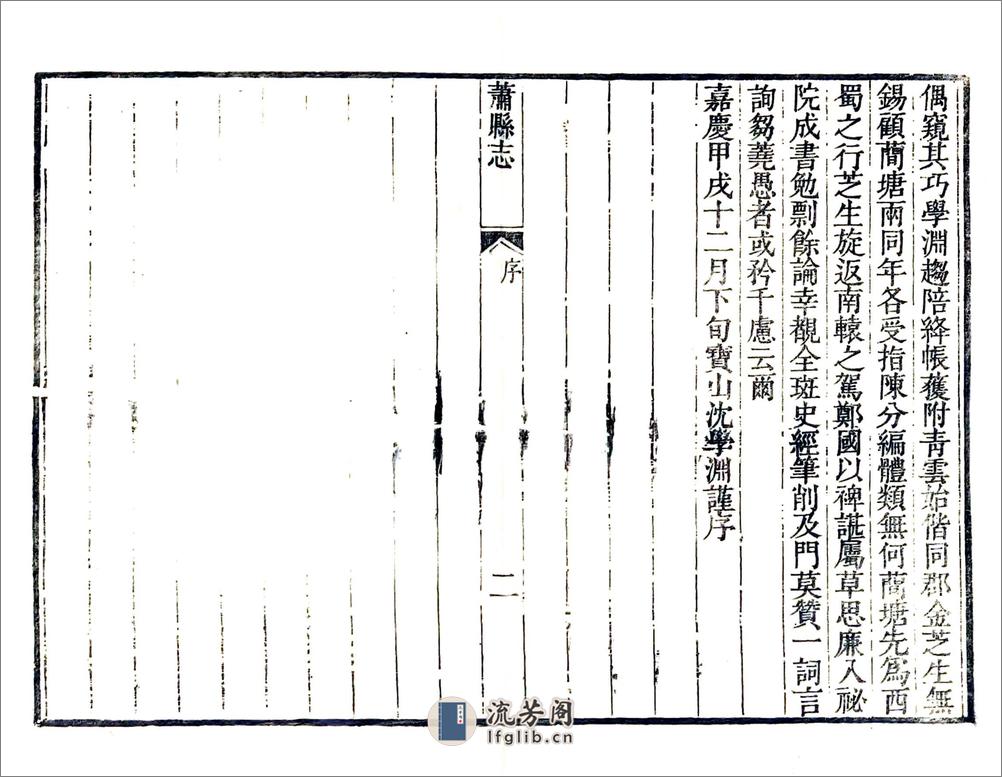 偶窺其巧學淵趨陪絳帳獲附青雲始偕同郡金芝生無
錫顧蕳塘兩同年各受指陳分編體類無何蕳塘先爲西
蜀之行芝生旋返南轅之駕鄭國以裨諶屬草思廉入祕
院成書勉剽餘論幸覩全斑史經筆削及門莫贊一詞言
詢芻蕘愚者或矜千慮云爾
嘉慶甲戌十二月下旬寶山沈學淵謹序
蕭縣志
序
二
流芳阁
lfglib.cn